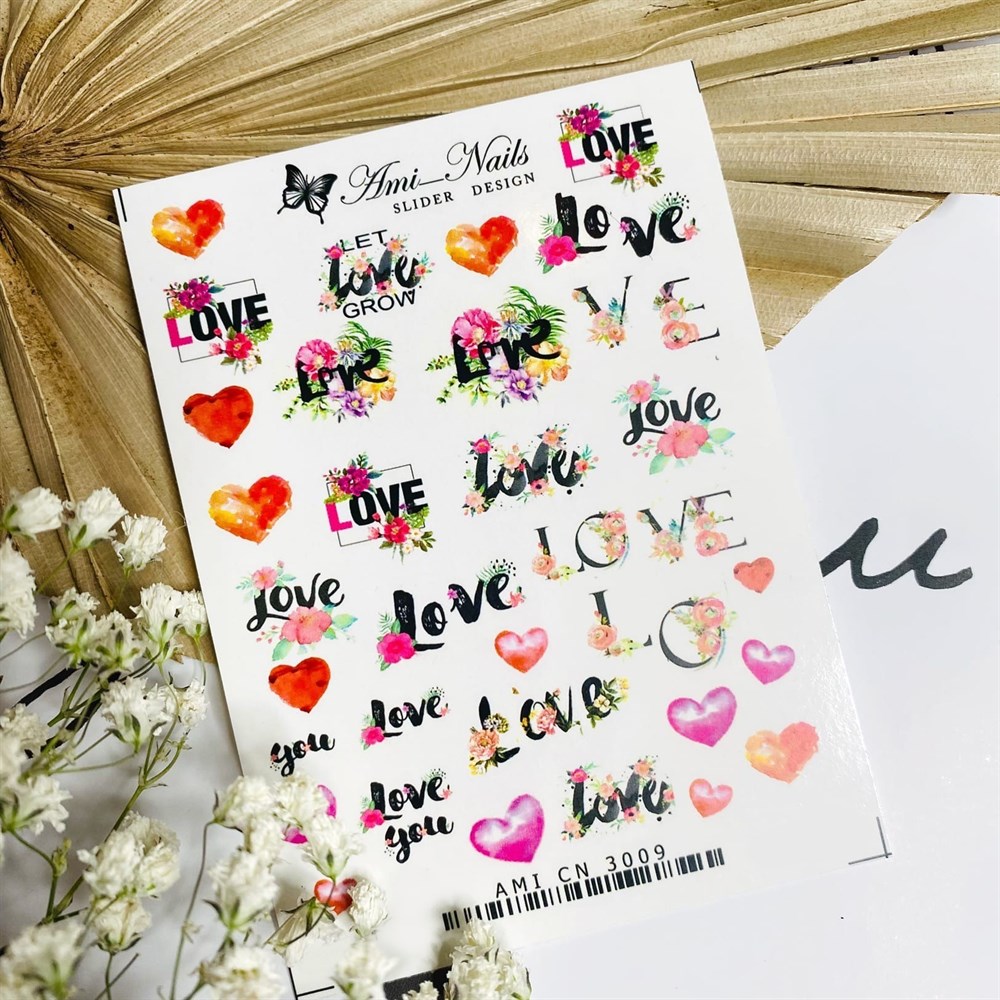 Ami_Nails
SLIDER DESIGN
LOVE
LET
Love
GROW
Love
LOVE
Love
Love
VE
Love
LOVE
Love
LOVE
Love
Love
LO
you
Love
Love
Love
you
Love
AMI CN 3009
u